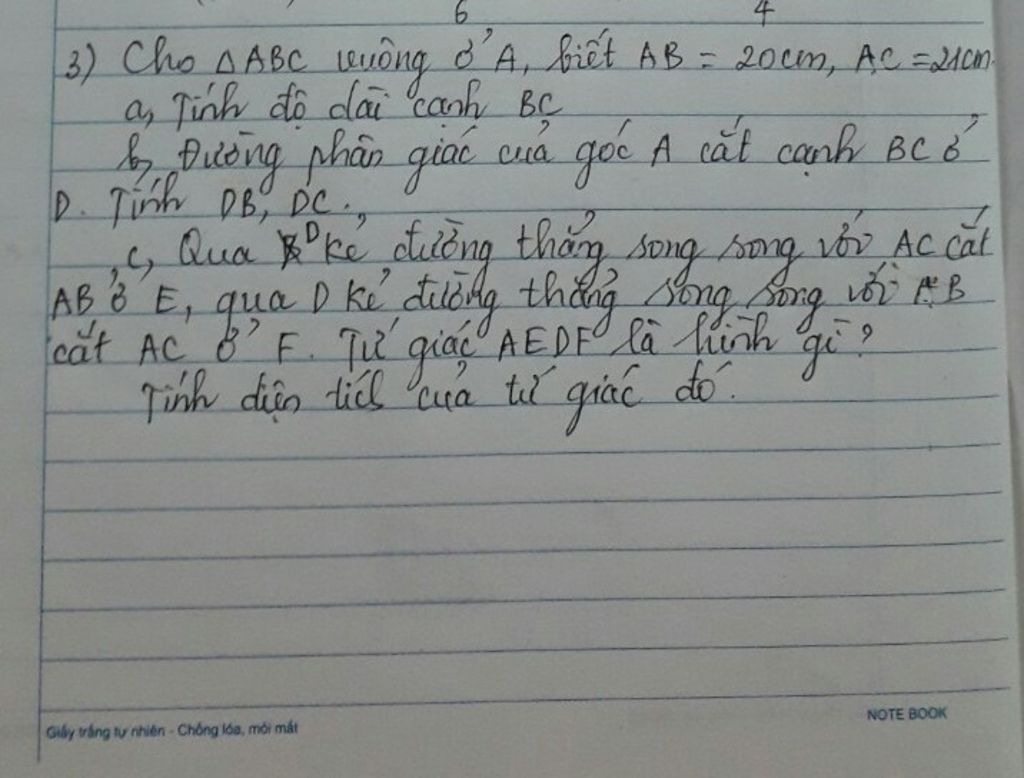 6 4
3) Cho △ABC vuông ở A, biết AB = 20cm, AC = 21cm.
a, Tính độ dài cạnh BC
b, Đường phân giác của góc A cắt cạnh BC ở
D. Tính DB, DC.
c, Qua D kẻ đường thẳng song song với AC cắt
AB ở E, qua D kẻ đường thẳng song song với AB
cắt AC ở F. Tứ giác AEDF là hình gì?
Tính diện tích của tứ giác đó.
Giấy trắng tự nhiên - Chống lóa, mỏi mắt
NOTE BOOK